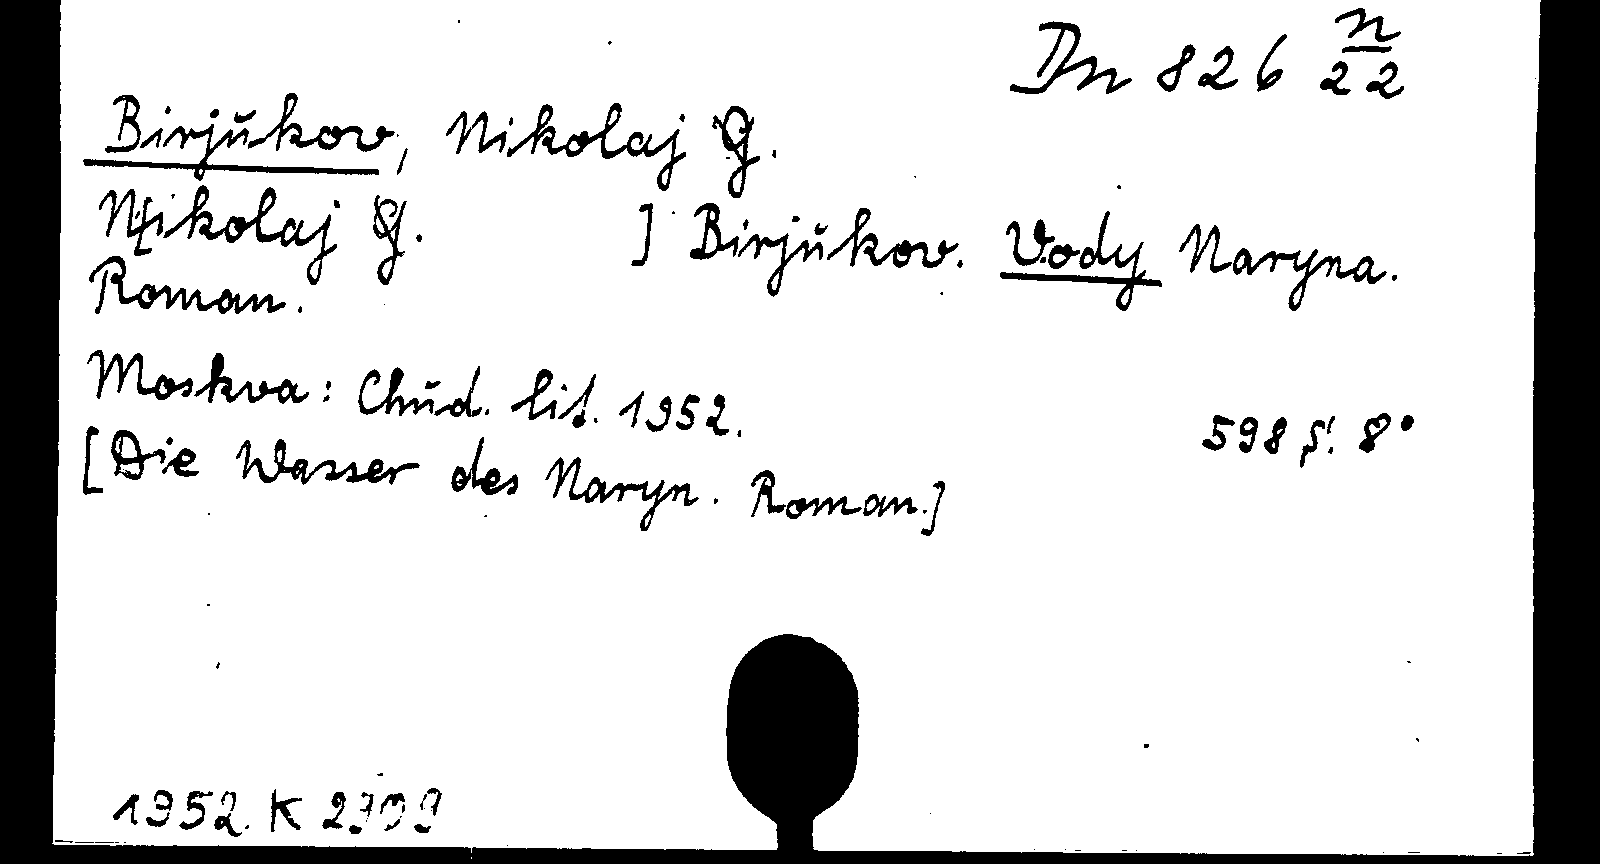 Dm 826 n/22
Birjŭkov, Nikolaj G.
N[ikolaj G. ] Birjŭkov. Vody Naryna.
Roman.
Moskva: Chŭd. lit. 1952. 598 S. 8°
[Die Wasser des Naryn. Roman.]
1952. K 2309